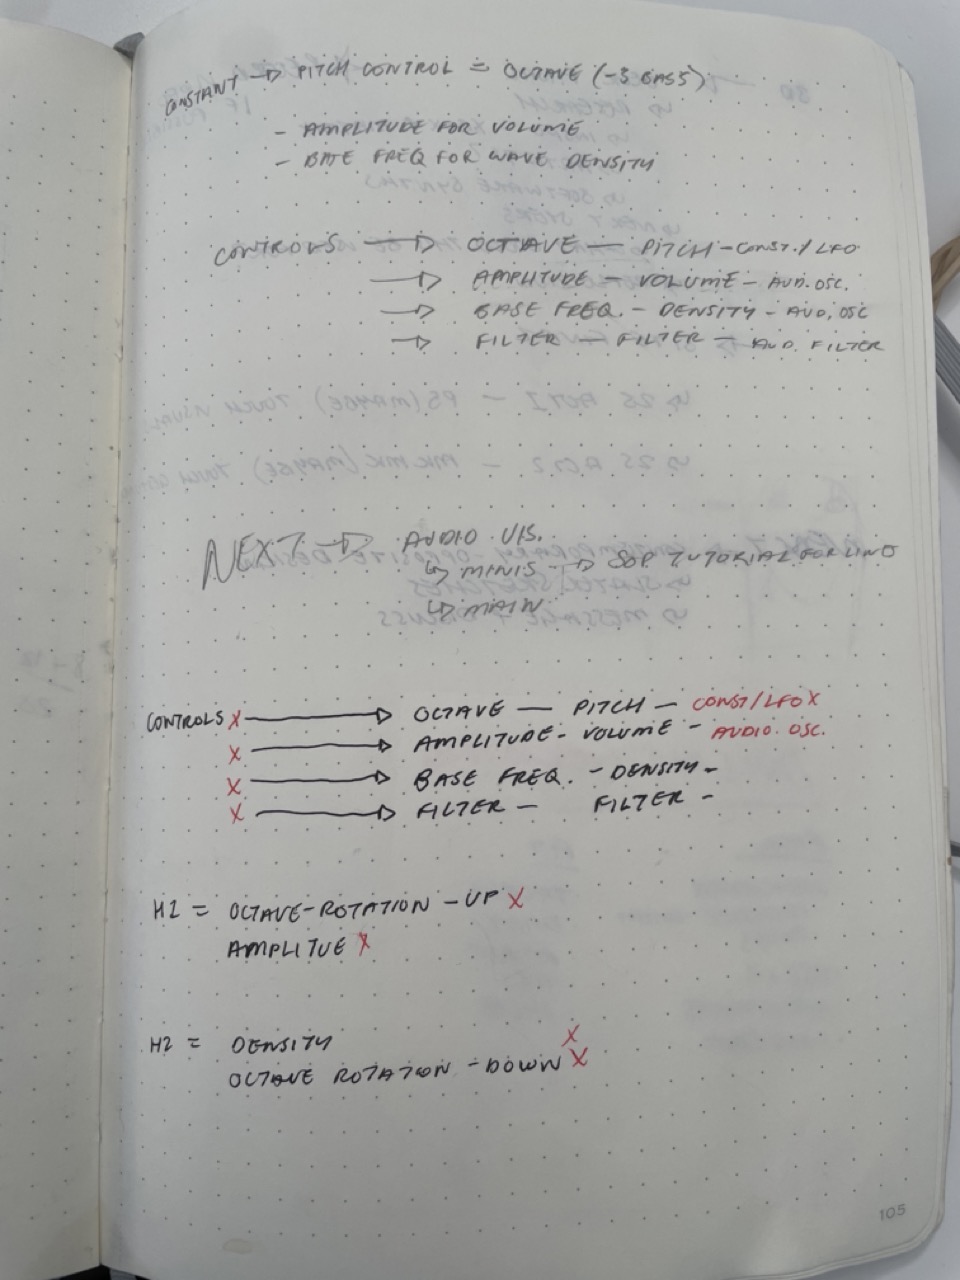 CONSTANT → PITCH CONTROL = OCTAVE (-3 BASS)
- AMPLITUDE FOR VOLUME
- BATE FREQ FOR WAVE DENSITY
CONTROLS → OCTAVE — PITCH - CONST./LFO
→ AMPLITUDE - VOLUME - AUD. OSC.
→ BASE FREQ. - DENSITY - AUD. OSC
→ FILTER — FILTER — AUD. FILTER
NEXT → AUDIO VIS.
↳ MINIS → SOP TUTORIAL FOR LINO
↳ MAIN
CONTROLS X → OCTAVE — PITCH — CONST/LFO X
X → AMPLITUDE - VOLUME - AUDIO. OSC.
X → BASE FREQ. - DENSITY -
X → FILTER — FILTER -
H1 = OCTAVE-ROTATION - UP X
AMPLITUE X
H2 = DENSITY X
OCTAVE ROTATION - DOWN X
105